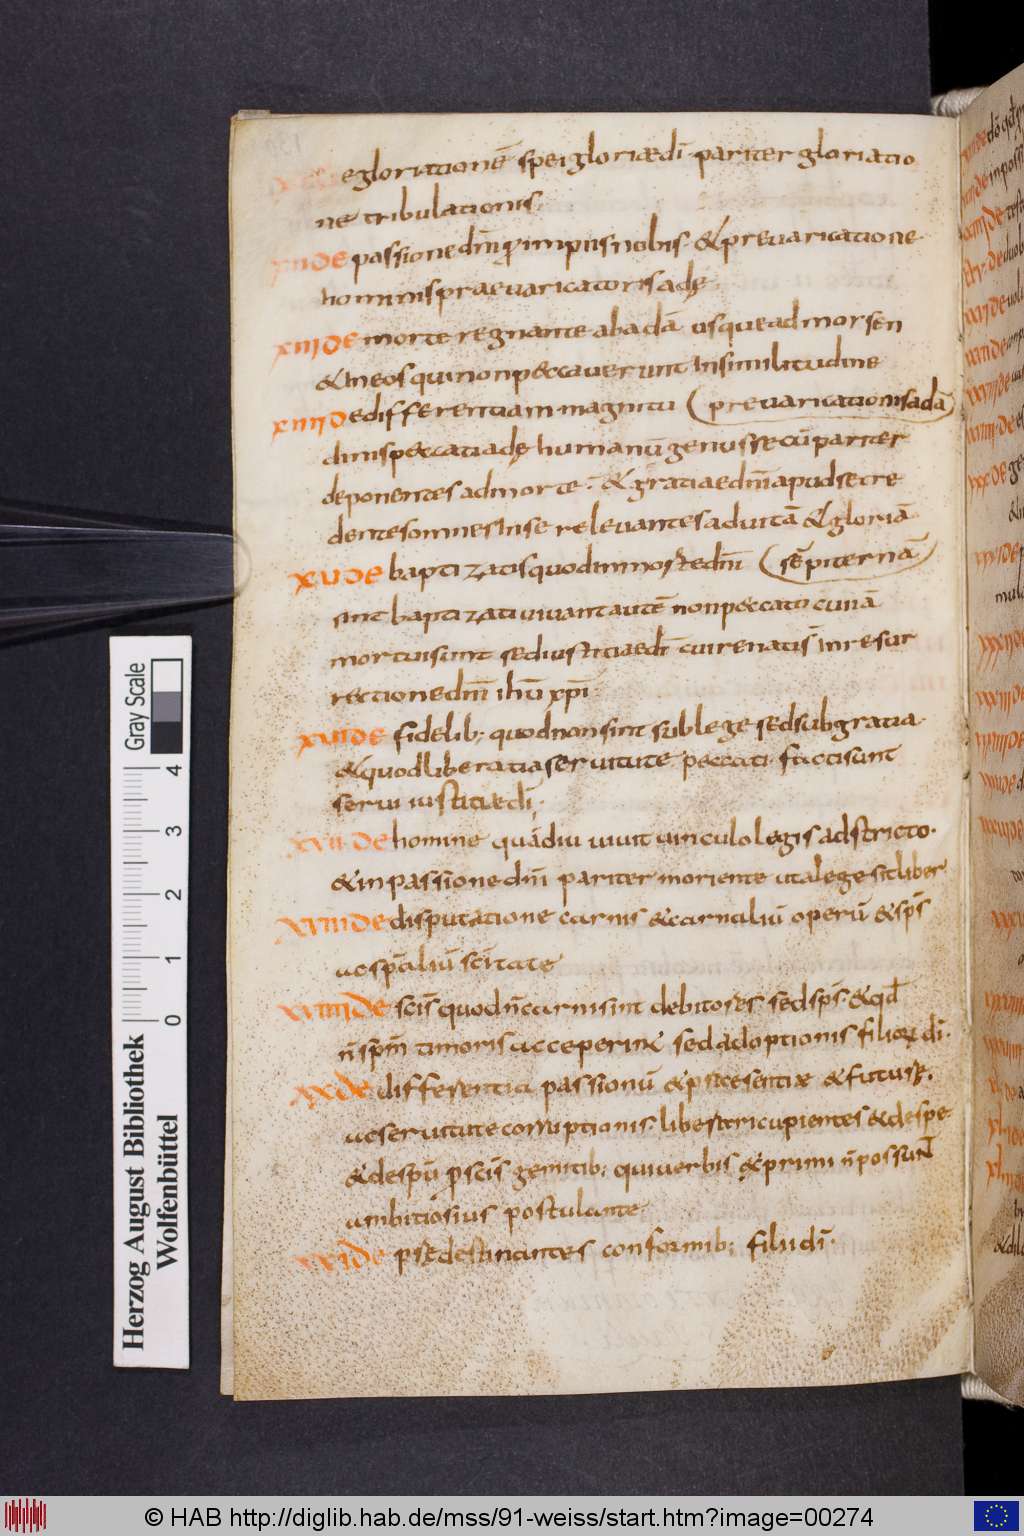 e gloriatione spei gloriae dī pariter gloriatio
ne tribulationis.
XII DE passione dn̄i ꝓ impiis nobis & prevaricatione
hominis praevaricatoris adę
XIII DE morte regnante ab adā usque ad morsen
& in eos qui non peccaverunt in similitudine
XIIII DE differentiam magnitu (prevaricationis adā)
dinis peccati adę humanū genus secū pariter
deponentes ad morte. & gratiae dn̄i apud se cre
dentes omnes in se relevantes ad vitā & gloriā
XV DE baptizatis quod in morte dn̄i (sēpiternā)
sint baptizati vivant autē non peccato cui iā
mortui sunt sed iustitiae dī cui renatis in resur
rectione dn̄i ihū xp̄i
XVI DE fidelib; quod non sint sub lege sed sub gratia
& quod liberati a servitute peccati facti sunt
servi iustitiae dī.
XVII DE homine quādiu vivit vinculo legis adstricto.
& in passione dn̄i pariter moriente ut a lege sit liber
XVIII DE disputatione carnis & carnaliū operū & sp̄s
ac sp̄aliū sc̄itate
XVIIII DE sc̄is quod n̄ carni sint debitores sed sp̄s. & qd̄
n̄ sp̄m timoris acceperint sed adoptionis filioꝝ dī.
XX DE differentia passionū & presentiae & future.
a servitute corruptionis liberari cupientes & de spe
& de spū ꝓ sc̄is gemitib; qui verbis exprimi n̄ possunt
ambitiosius postulante
XXI DE predestinantes conformib; filii dī.
Herzog August Bibliothek
Wolfenbüttel
0 1 2 3 4
Gray Scale
© HAB http://diglib.hab.de/mss/91-weiss/start.htm?image=00274